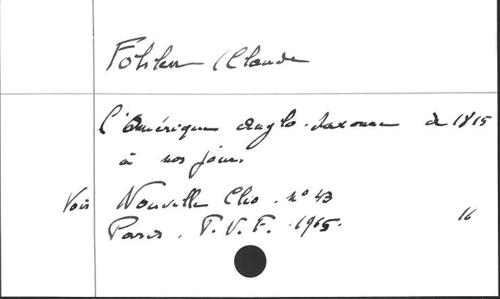 Fohlen (Claude
L'Amérique anglo-saxonne de 1815
à nos jours
Voir Nouvelle Clio. n° 43
Paris. P. U. F. 1965. 16